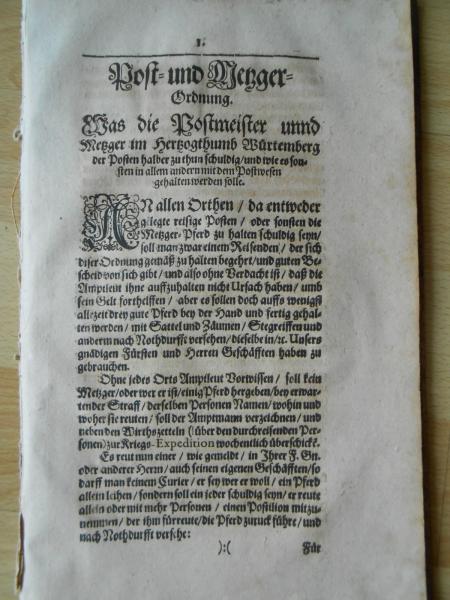 1.
Post- und Metzger-
Ordnung.
Was die Postmeister unnd
Metzger im Hertzogthumb Würtemberg
der Posten halber zu thun schuldig / und wie es son-
sten in allem andern mit dem Postwesen
gehalten werden solle.
AN allen Orthen / da entweder
gelegte reisige Posten / oder sonsten die
Metzger-Pferd zu halten schuldig seyn /
soll man zwar einem Reisenden / der sich
diser Ordnung gemäß zu halten begehrt / und guten Be-
scheid von sich gibt / und also ohne Verdacht ist / daß die
Amptleut ihne auffzuhalten nicht Ursach haben / umb
sein Gelt forthelffen / aber es sollen doch auffs wenigst
allezeit drey gute Pferd bey der Hand und fertig gehal-
ten werden / mit Sattel und Zäumen / Stegreiffen und
anderm nach Nothdurfft versehen / dieselbe in / ꝛc. Unsers
gnädigen Fürsten und Herren Geschäfften haben zu
gebrauchen.
Ohne jedes Orts Amptleut Vorwissen / soll kein
Metzger / oder wer er ist / einig Pferd hergeben / bey erwar-
tender Straff / derselben Personen Namen / wohin und
woher sie reuten / soll der Amptmann verzeichnen / und
neben den Wirthszetteln (über den durchreisenden Per-
sonen) zur Kriegs-Expedition wochentlich überschickẽ.
Es reut nun einer / wie gemeldt / in Ihrer F. Gn.
oder anderer Herrn / auch seinen eigenen Geschäfften / so
darff man keinem Curier / er sey wer er woll / ein Pferd
allein leihen / sondern soll ein jeder schuldig seyn / er reute
allein oder mit mehr Personen / einen Postilion mitzu-
nemmen / der ihm fürreute / die Pferd zuruck führe / und
nach Nothdurfft versehe:
):(
Für